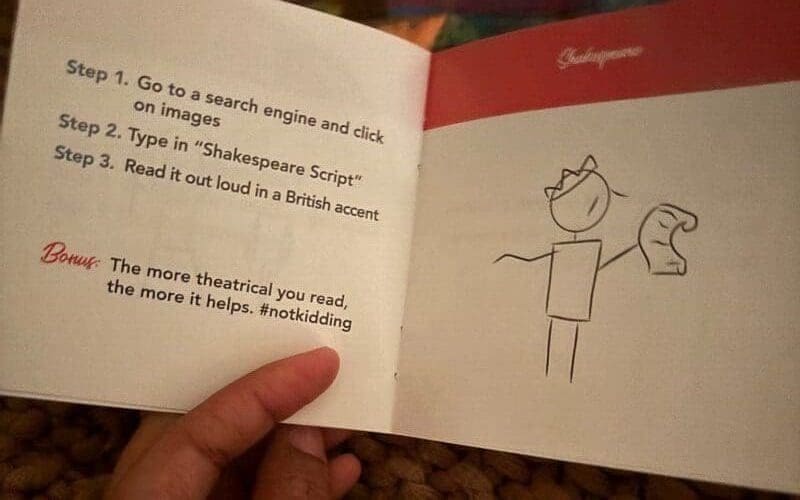 Step 1. Go to a search engine and click
on images
Step 2. Type in “Shakespeare Script”
Step 3. Read it out loud in a British accent
Bonus: The more theatrical you read,
the more it helps. #notkidding
Shakespeare